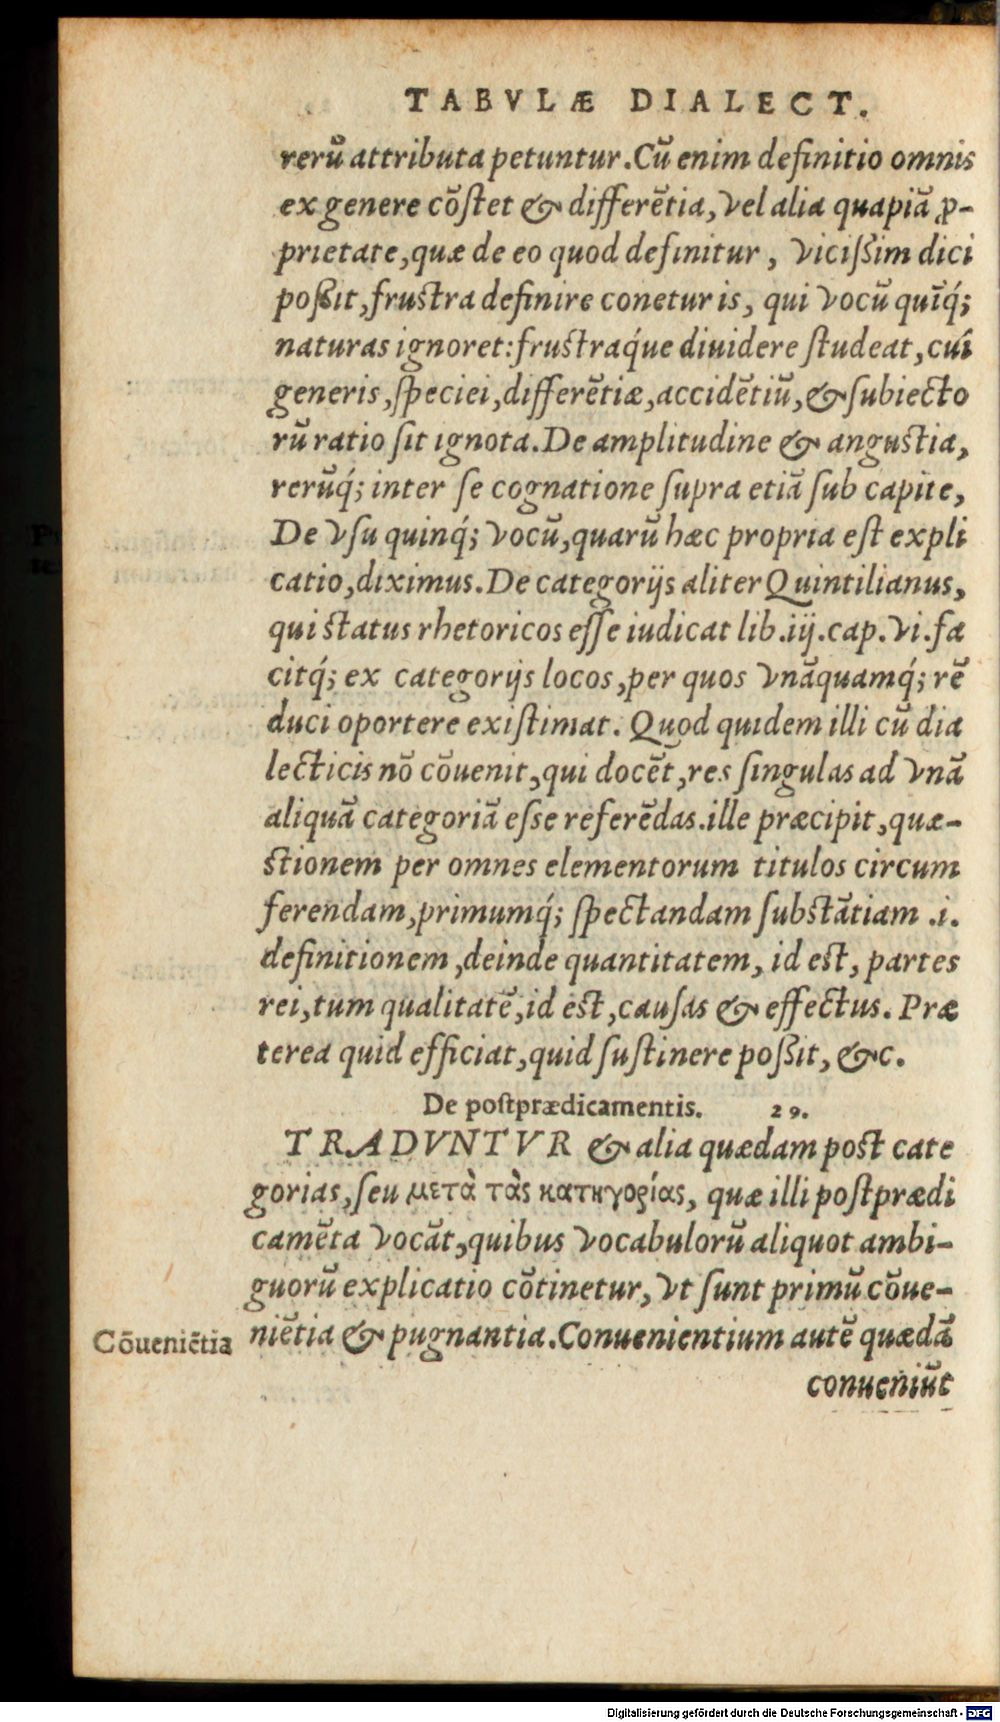 TABVLÆ DIALECT.
rerū attributa petuntur. Cū enim definitio omnis
ex genere cōſtet & differētia, vel alia quapiā ꝓ-
prietate, quæ de eo quod definitur, viciſſim dici
poſſit, fruſtra definire conetur is, qui vocū quīq́;
naturas ignoret: fruſtraq́ue diuidere ſtudeat, cui
generis, ſpeciei, differētiæ, accidētiū, & ſubiecto
rū ratio ſit ignota. De amplitudine & anguſtia,
rerūq́; inter ſe cognatione ſupra etiā ſub capite,
De vſu quinq́; vocū, quarū hæc propria eſt expli
catio, diximus. De categorijs aliter Quintilianus,
qui ſtatus rhetoricos eſſe iudicat lib. iij. cap. vi. fa
citq́; ex categorijs locos, per quos vnāquamq́; rē
duci oportere exiſtimat. Quod quidem illi cū dia
lecticis nō cōuenit, qui docēt, res ſingulas ad vnā
aliquā categoriā eſse referēdas. ille præcipit, quæ-
ſtionem per omnes elementorum titulos circum
ferendam, primumq́; ſpectandam ſubſtātiam .i.
definitionem, deinde quantitatem, id eſt, partes
rei, tum qualitatē, id eſt, cauſas & effectus. Præ
terea quid efficiat, quid ſuſtinere poſſit, &c.
De poſtprædicamentis. 29.
TRADVNTVR & alia quædam poſt cate
gorias, ſeu μετὰ τὰς κατηγορίας, quæ illi poſtprædi
camēta vocāt, quibus vocabulorū aliquot ambi-
guorū explicatio cōtinetur, vt ſunt primū cōue-
Cōueniētia
niētia & pugnantia. Conuenientium autē quædā
conueniūt
Digitalisierung gefördert durch die Deutsche Forschungsgemeinschaft - DFG